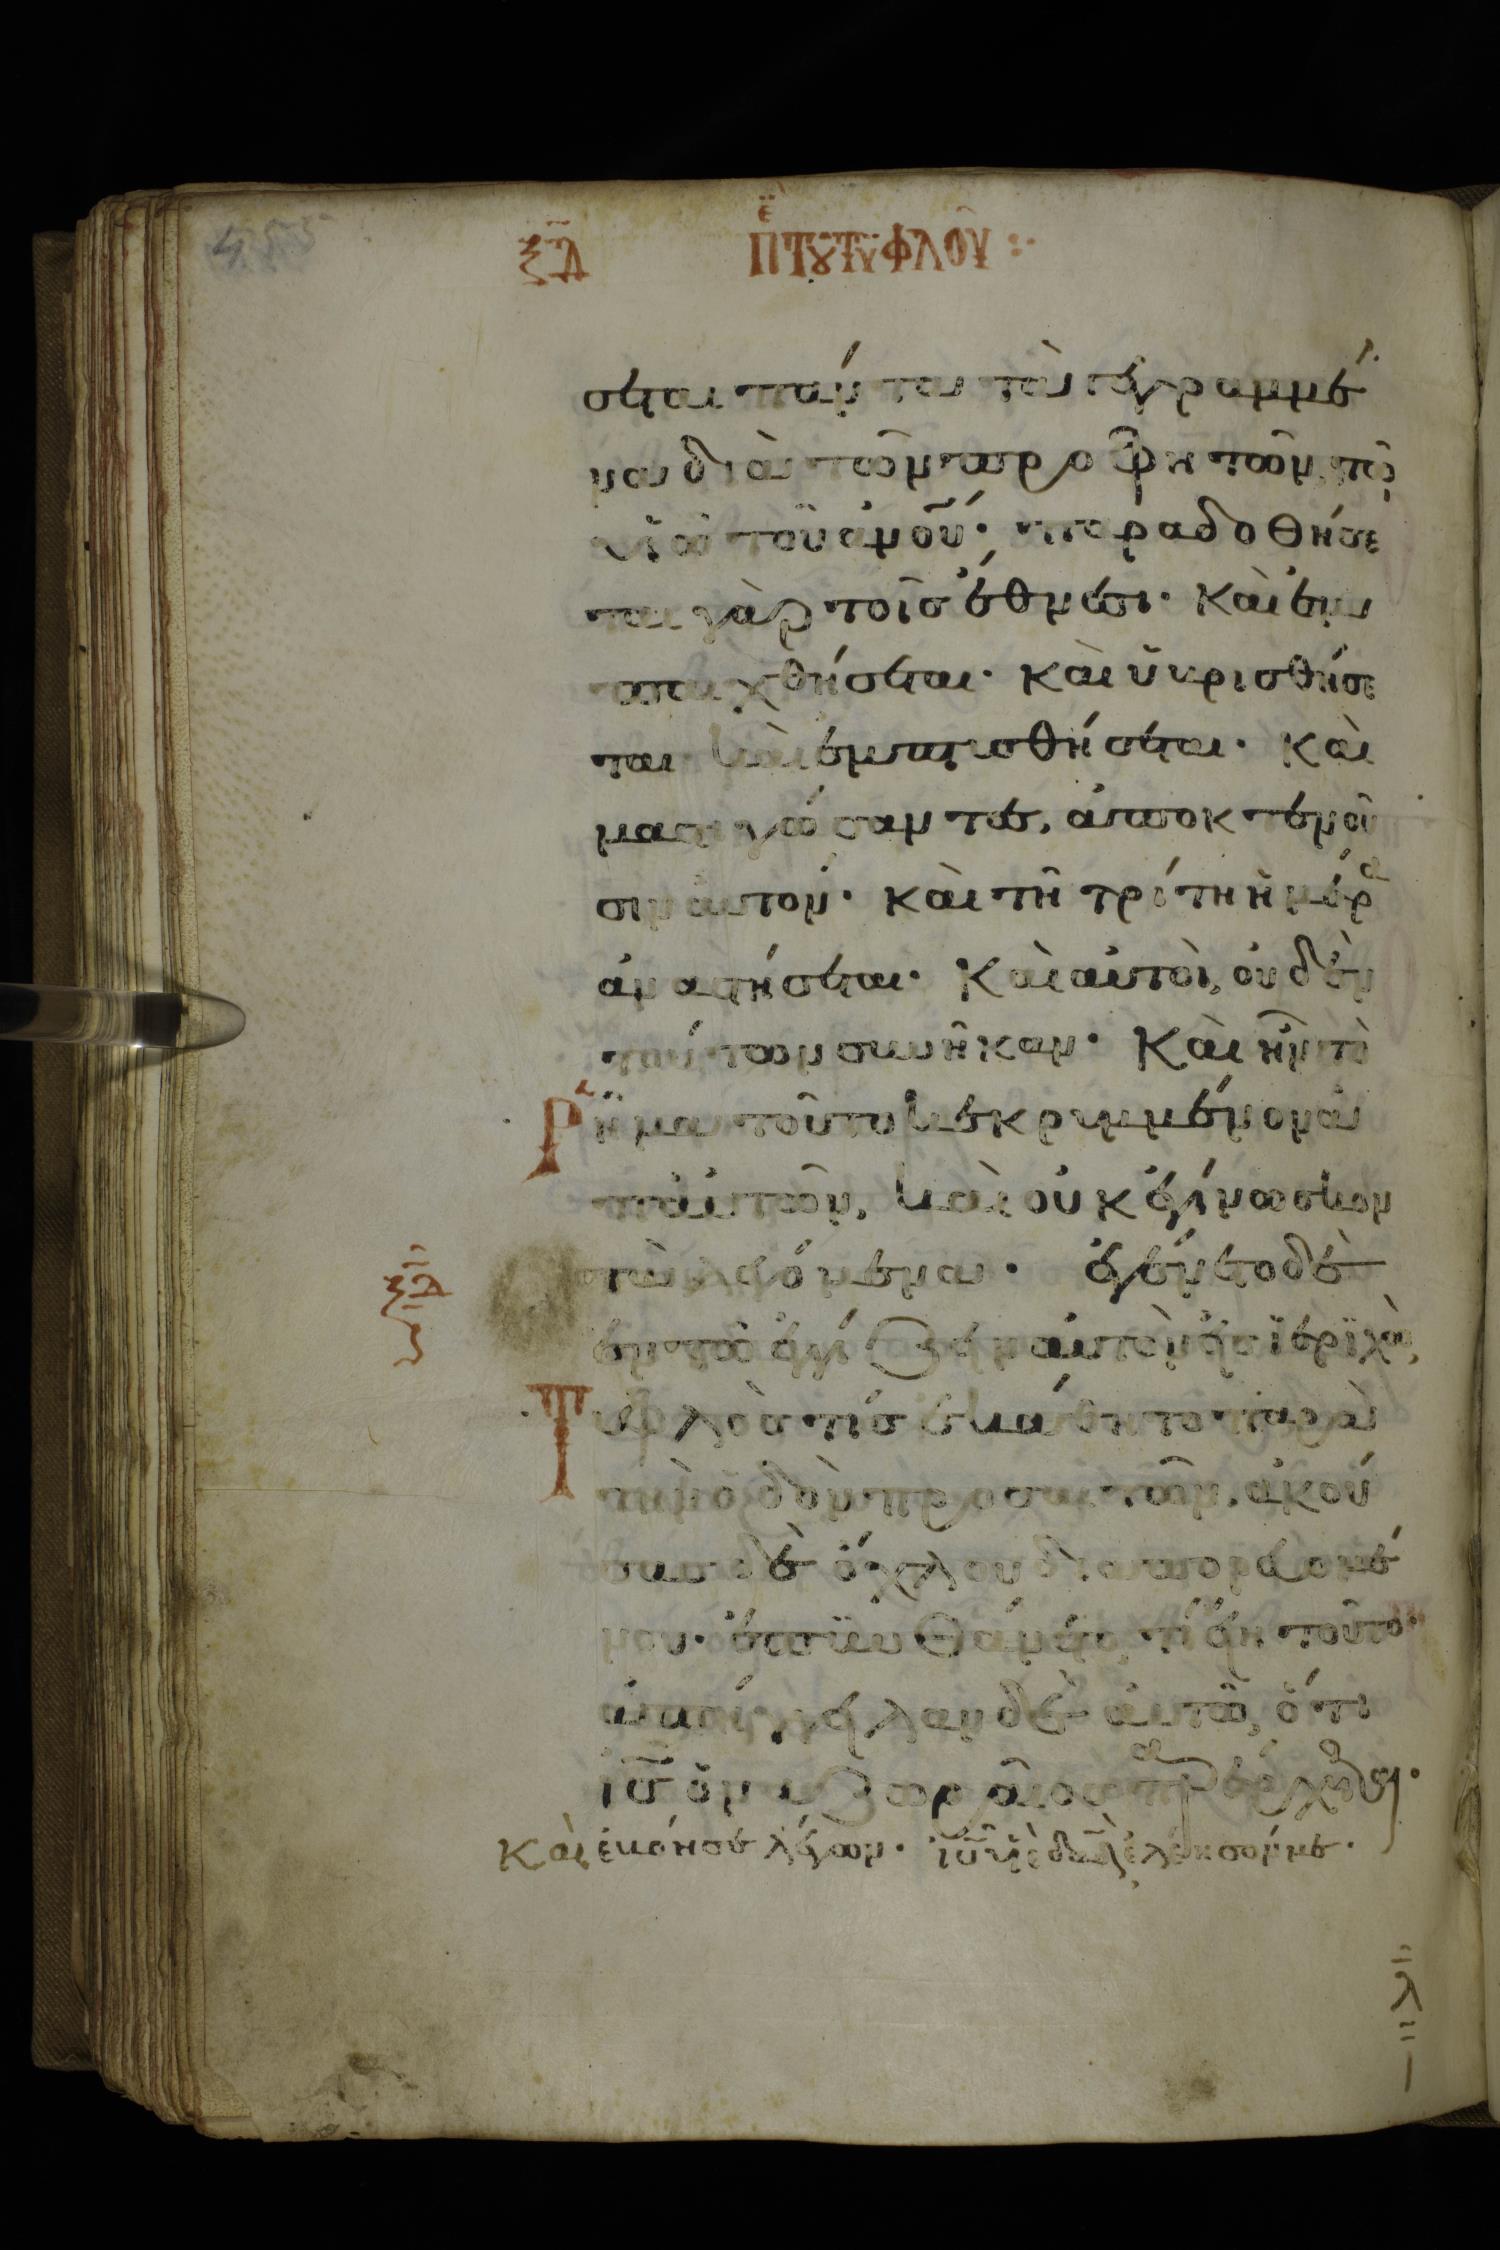 ξδ πε̣ τοῦ τυφλοῦ :·
σεται πάντα τὰ γεγραμμέ
να διὰ τῶν προφητῶν, τῶ
υἱῶ τοῦ ἀνοῦ· παραδοθήσε
ται γὰρ τοῖς ἔθνεσι· καὶ ἐμ
παιχθήσεται· καὶ ὑβρισθήσε
ται καὶ ἐμπτυσθήσεται· καὶ
μαστιγώσαντες, ἀποκτενοῦ
σιν αὐτόν· καὶ τῆ τρίτη ἡμέρα
ἀναστήσεται· καὶ αὐτοὶ, οὐδὲν
τούτων συνῆκαν· καὶ ἦν τὸ
Ῥῆμα τοῦτο κεκρυμμένον ἀ
π' αὐτῶν, καὶ οὐκ ἐγίνωσκον
τὰ λεγόμενα· ἐγένετο δὲ
ξδ
ἐν τῶ ἐγγίζειν αὐτὸν εἰς ἱεριχὼ,
Τυφλὸς τίς ἐκάθητο παρὰ
τὴν ὁδὸν προσαιτῶν, ἀκού
σας δὲ ὄχλου διαπορευομέ
νου· ἐπυνθάνετο, τί εἴη τοῦτο·
ἀπήγγειλαν δὲ αὐτῶ, ὅτι
ις ὁ ναζωραῖος παρέρχεται·
καὶ ἐβόησε λέγων· ιυ υἱὲ δαδ ἐλέησόν με·
λ